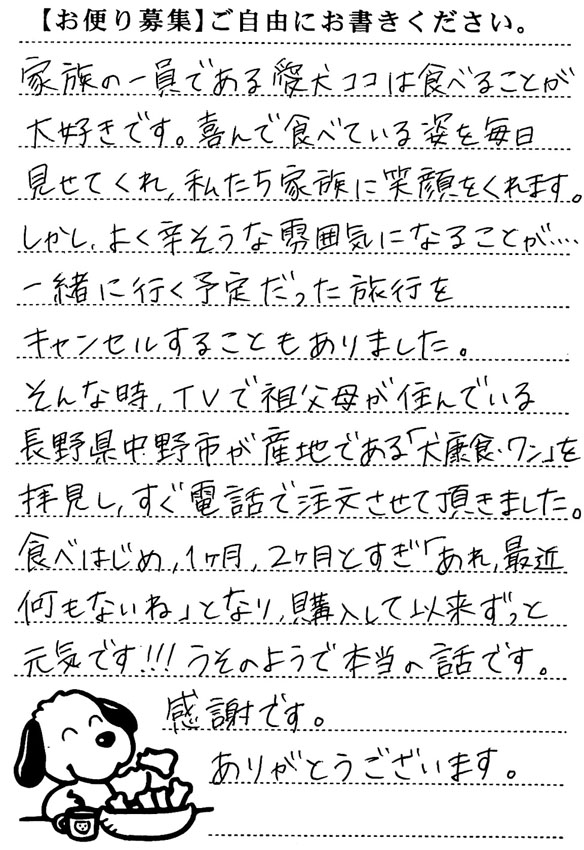 【お便り募集】ご自由にお書きください。
家族の一員である愛犬ココは食べることが
大好きです。喜んで食べている姿を毎日
見せてくれ,私たち家族に笑顔をくれます。
しかし、よく辛そうな雰囲気になることが…
一緒に行く予定だった旅行を
キャンセルすることもありました。
そんな時,TVで祖父母が住んでいる
長野県中野市が産地である「犬康食・ワン」を
拝見し,すぐ電話で注文させて頂きました。
食べはじめ,1ヶ月,2ヶ月とすぎ「あれ,最近
何もないね」となり,購入して以来ずっと
元気です!!!うそのようで本当の話です。
感謝です。
ありがとうございます。